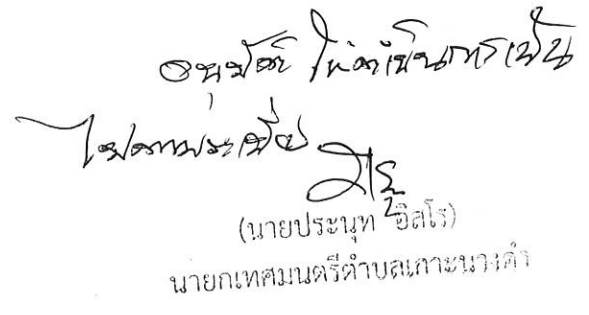 อนุมัติ ให้ดำเนินการเป็น
ไปตามระเบียบ
(นายประนุท อิสโร)
นายกเทศมนตรีตำบลเกาะนางคำ